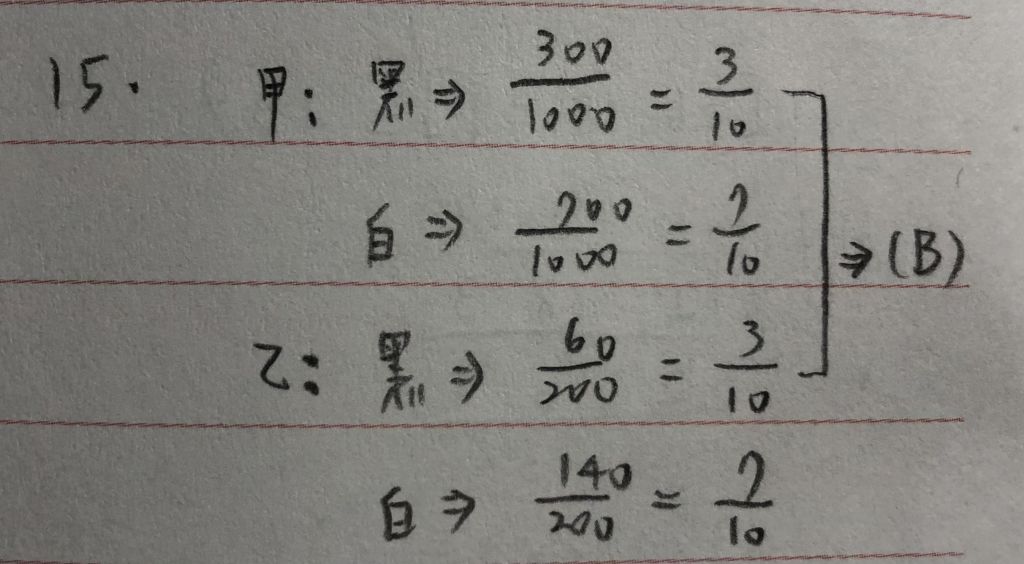 15. 甲: 黑 ⇒ 300/1000 = 3/10
白 ⇒ 700/1000 = 7/10 ⇒ (B)
乙: 黑 ⇒ 60/200 = 3/10
白 ⇒ 140/200 = 7/10